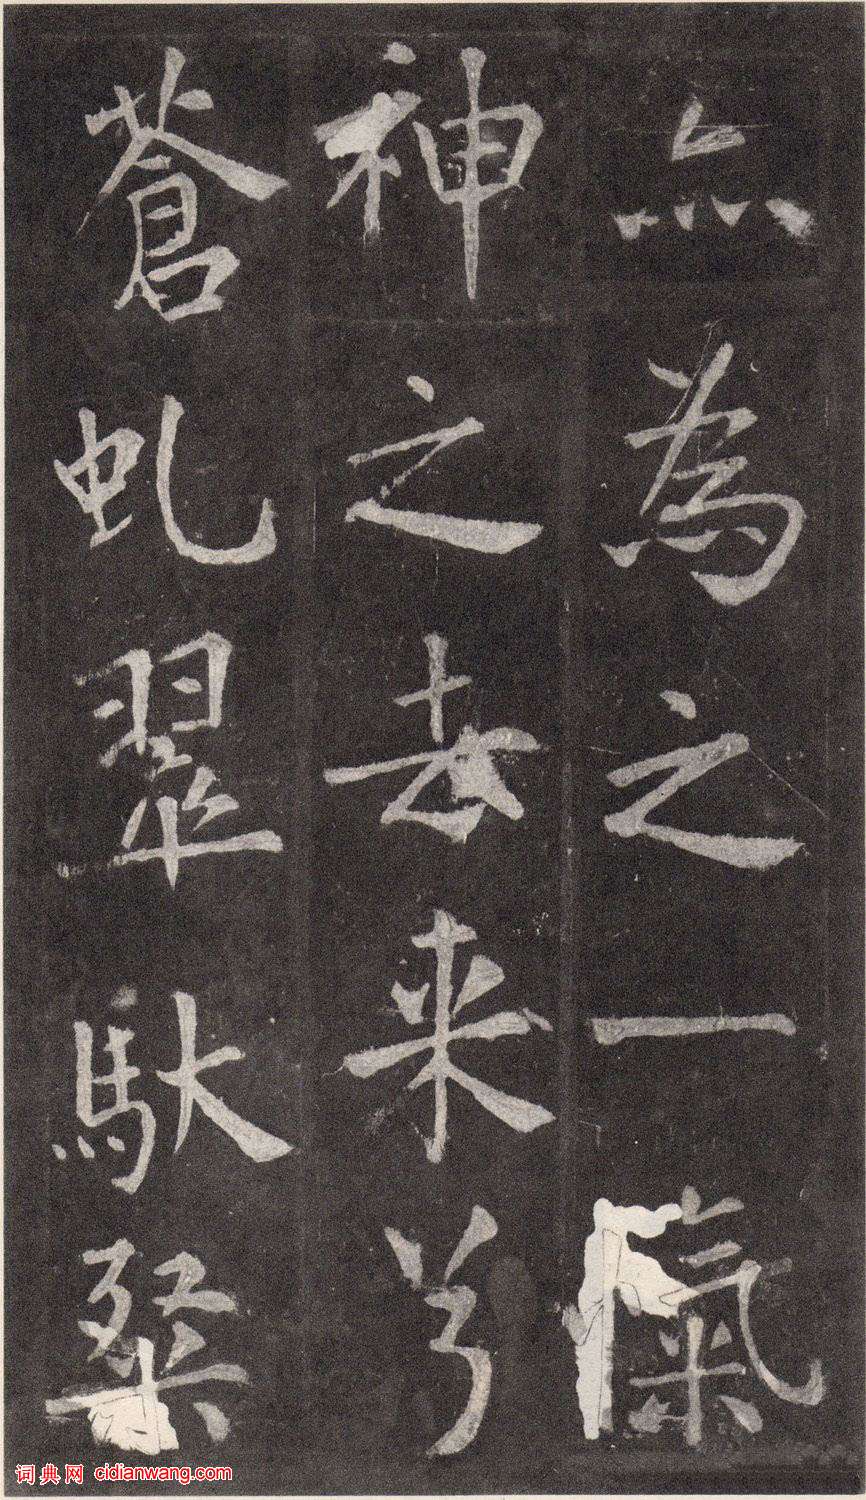 亦為之一氣
神之去来兮
蒼虬翠馱粲
词典网 cidianwang.com